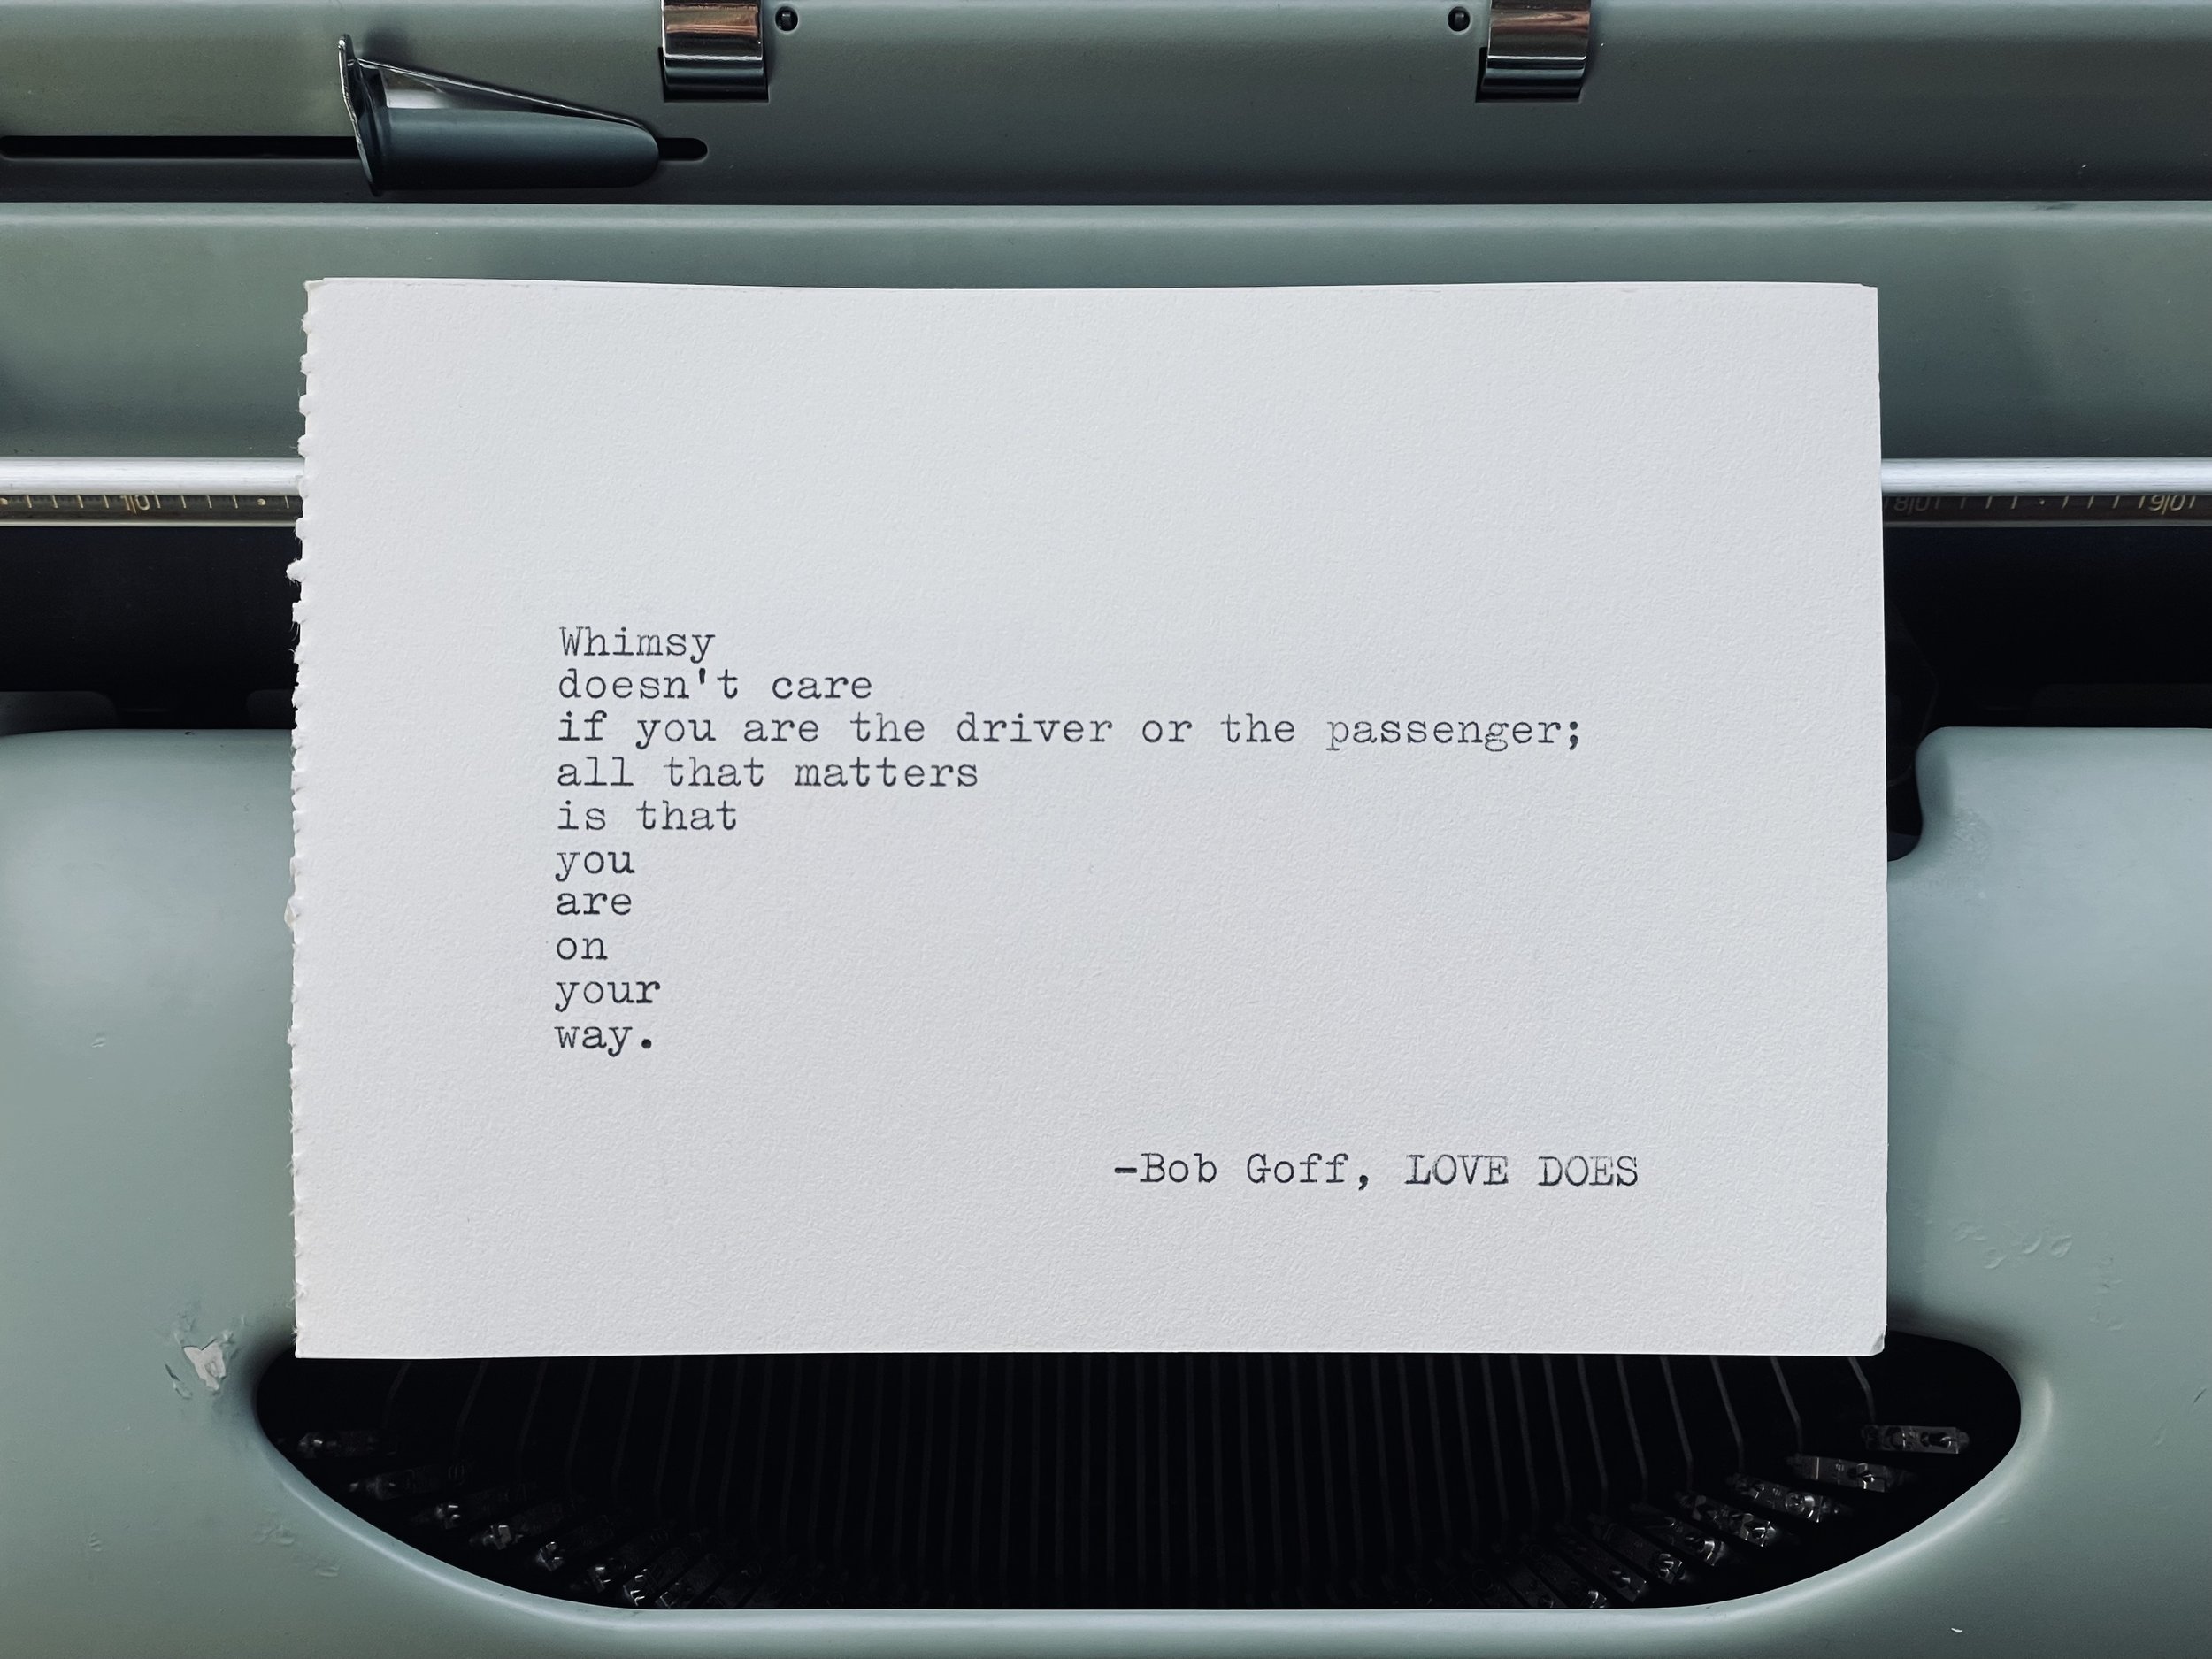 Whimsy
doesn't care
if you are the driver or the passenger;
all that matters
is that
you
are
on
your
way.
-Bob Goff, LOVE DOES